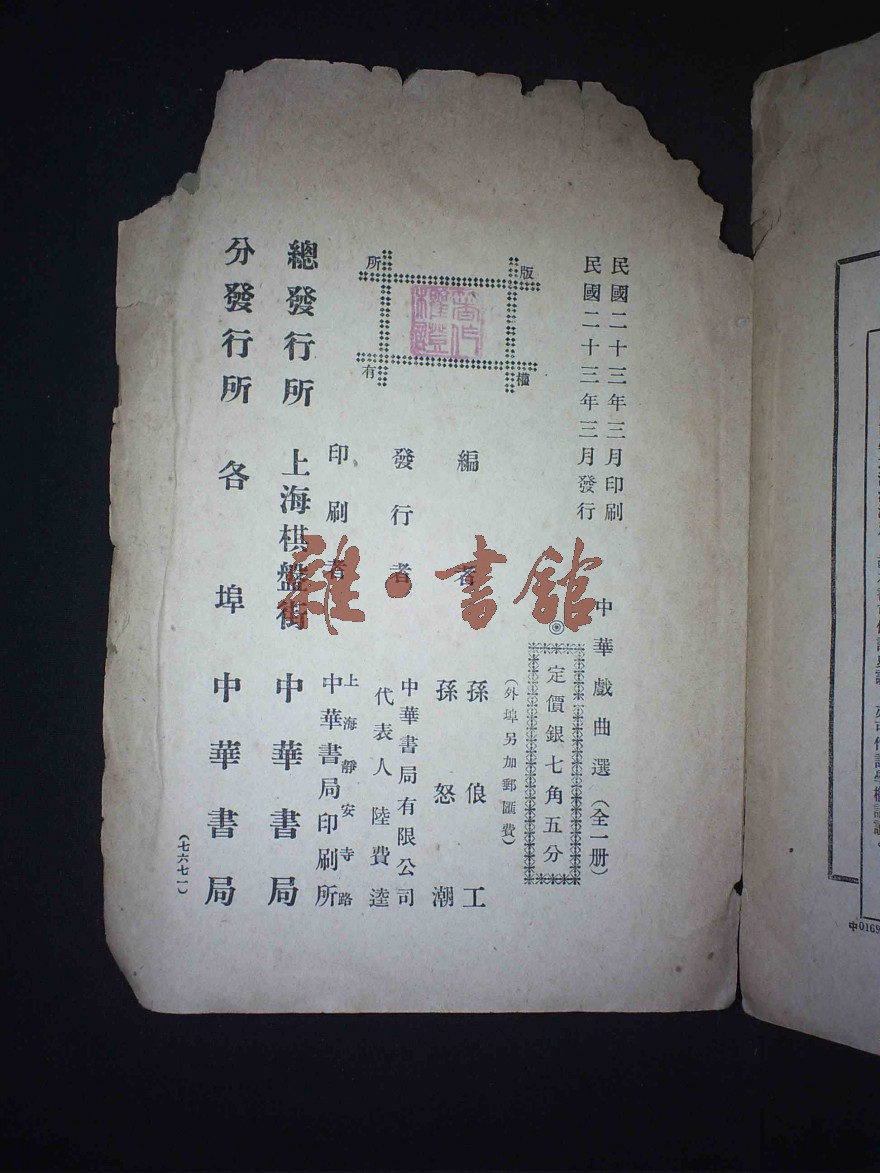 民國二十三年三月印刷
民國二十三年三月發行
中華戲曲選（全一册）
◎
定價銀七角五分
（外埠另加郵匯費）
版權所有
編者 孫俍工
孫怒潮
發行者 中華書局有限公司
代表人 陸費逵
印刷者 上海靜安寺路
中華書局印刷所
總發行所 上海棋盤街 中華書局
分發行所 各埠 中華書局
（七六七一）
雜·書館
中0169